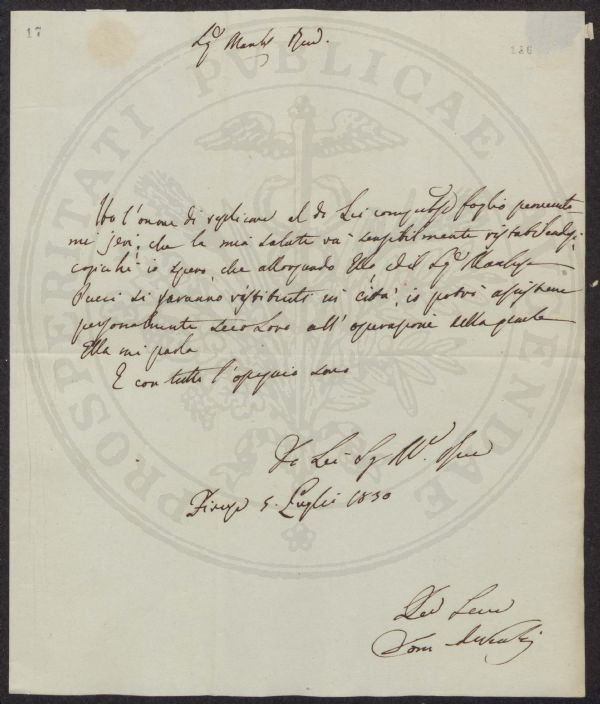 17
186
Sig. March. Rev.
Ho l'onore di replicare al di Lei compitiss. foglio pervenuto
mi jeri, che la mia salute va sensibilmente ristabilendosi
cosicché io spero, che allorquando Ella ed il Sig. Marchese
Pucci si saranno restituiti in città, io potrò assistere
personalmente Seco Loro all'operazione della quale
Ella mi parla
E con tutto l'ossequio sono
Di Lei Sig. M.
Firenze 5. Luglio 1830
Dev. Serv.
PROSPERITATI PVBLICAE